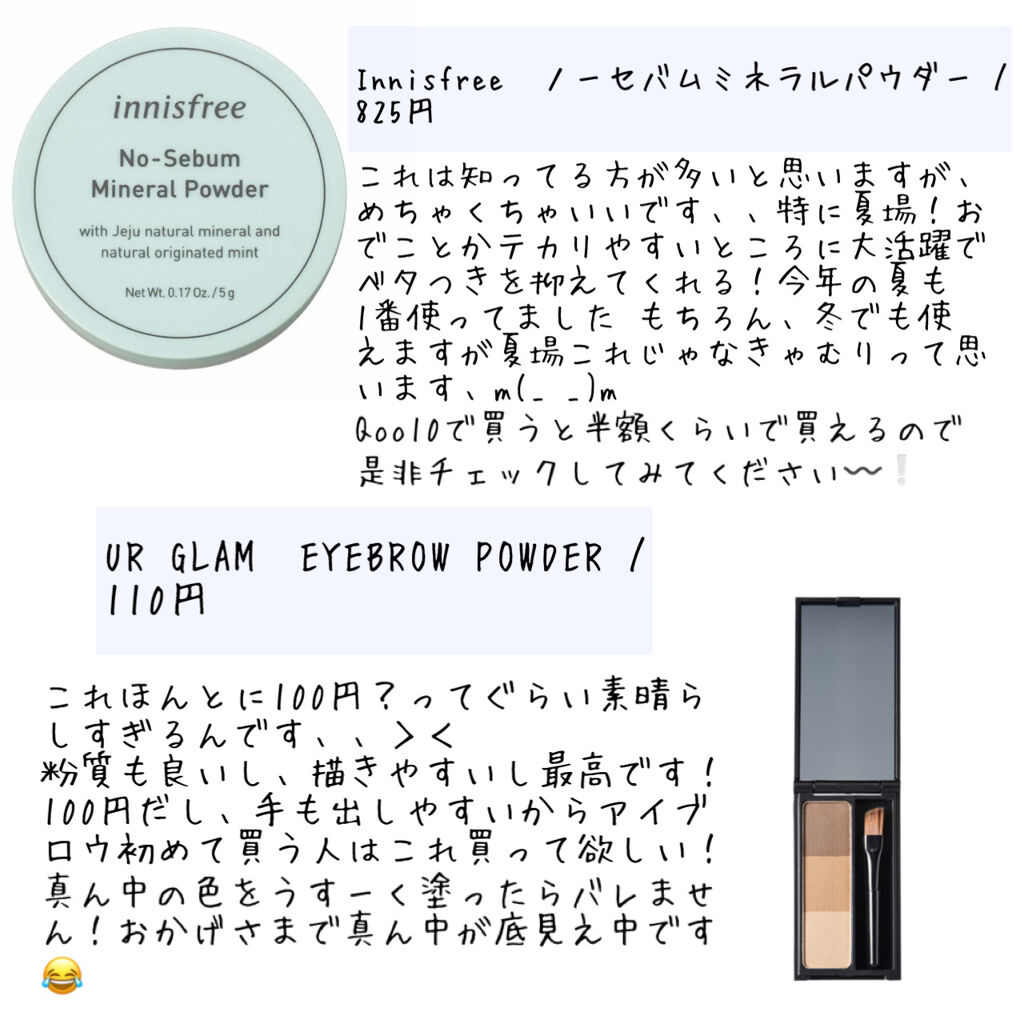 innisfree
No-Sebum
Mineral Powder
with Jeju natural mineral and
natural originated mint
Net Wt. 0.17 Oz. / 5 g
Innisfree ノーセバムミネラルパウダー /
825円
これは知ってる方が多いと思いますが、
めちゃくちゃいいです、、特に夏場！お
でことかテカリやすいところに大活躍で
ベタつきを抑えてくれる！今年の夏も
1番使ってました もちろん、冬でも使
えますが夏場これじゃなきゃむりって思
います、m(_ _)m
Qoo10で買うと半額くらいで買えるので
是非チェックしてみてください〰❕
UR GLAM EYEBROW POWDER /
110円
これほんとに100円？ってぐらい素晴ら
しすぎるんです、、＞＜
粉質も良いし、描きやすいし最高です！
100円だし、手も出しやすいからアイブ
ロウ初めて買う人はこれ買って欲しい！
真ん中の色をうすーく塗ったらバレませ
ん！おかげさまで真ん中が底見え中です
😂